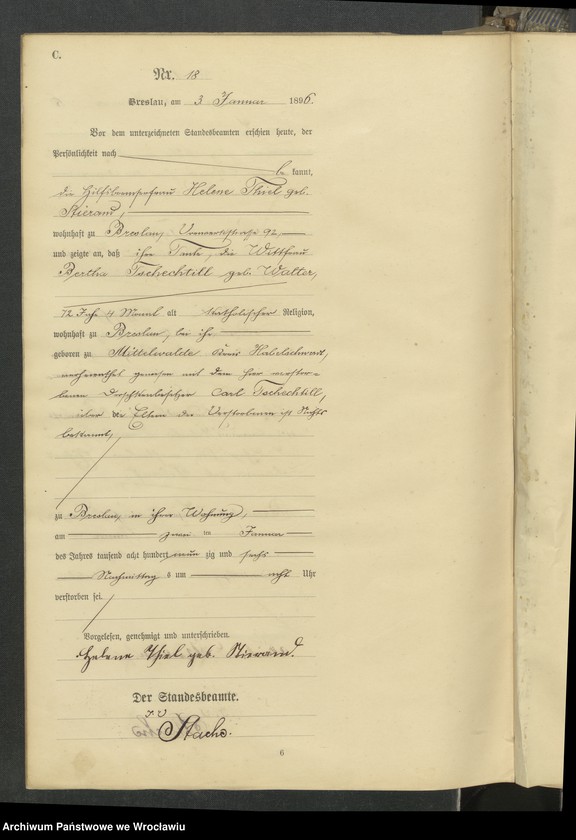 C.
Nr. 18
Breslau, am 3 Januar 1896.
Vor dem unterzeichneten Standesbeamten erschien heute, der
Persönlichkeit nach
be kannt,
die Helene Thiel geb.
Stierand,
wohnhaft zu Breslau, Vorwerkstraße 92,
und zeigte an, daß ihre Tante, die Wittfrau
Bertha Tschechtill geb. Walter,
72 Jahr 4 Monat alt katholischer Religion,
wohnhaft zu Breslau, bei ihr
geboren zu Mittelwalde Kreis Habelschwerdt,
verheirathet gewesen mit dem hier verstor-
benen Droschkenbesitzer Carl Tschechtill,
über die Eltern der Verstorbenen ist Nichts
bekannt,
zu Breslau, in ihrer Wohnung,
am zwei ten Januar
des Jahres tausend acht hundert neun zig und sechs
Nachmittag s um acht Uhr
verstorben sei.
Vorgelesen, genehmigt und unterschrieben.
Helene Thiel geb. Stierand.
Der Standesbeamte.
I. V
Stache.
6
Archiwum Państwowe we Wrocławiu